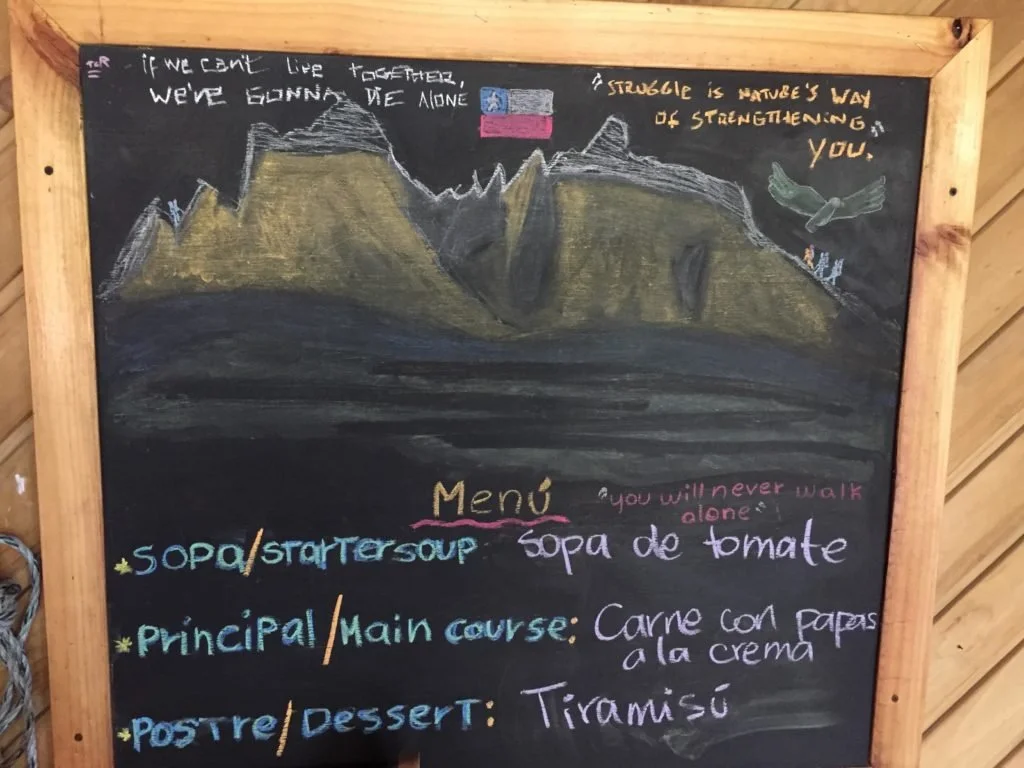 if we can't live TOGETHER,
WE'RE GONNA DIE ALONE
"STRUGGLE IS NATURE'S WAY
OF STRENGTHENING
YOU."
Menú
"you will never walk
alone"
*SOPA/STARTERSOUP sopa de tomate
*Principal/Main course: Carne con papas
a la crema
*POSTRE/DESSERT: Tiramisú